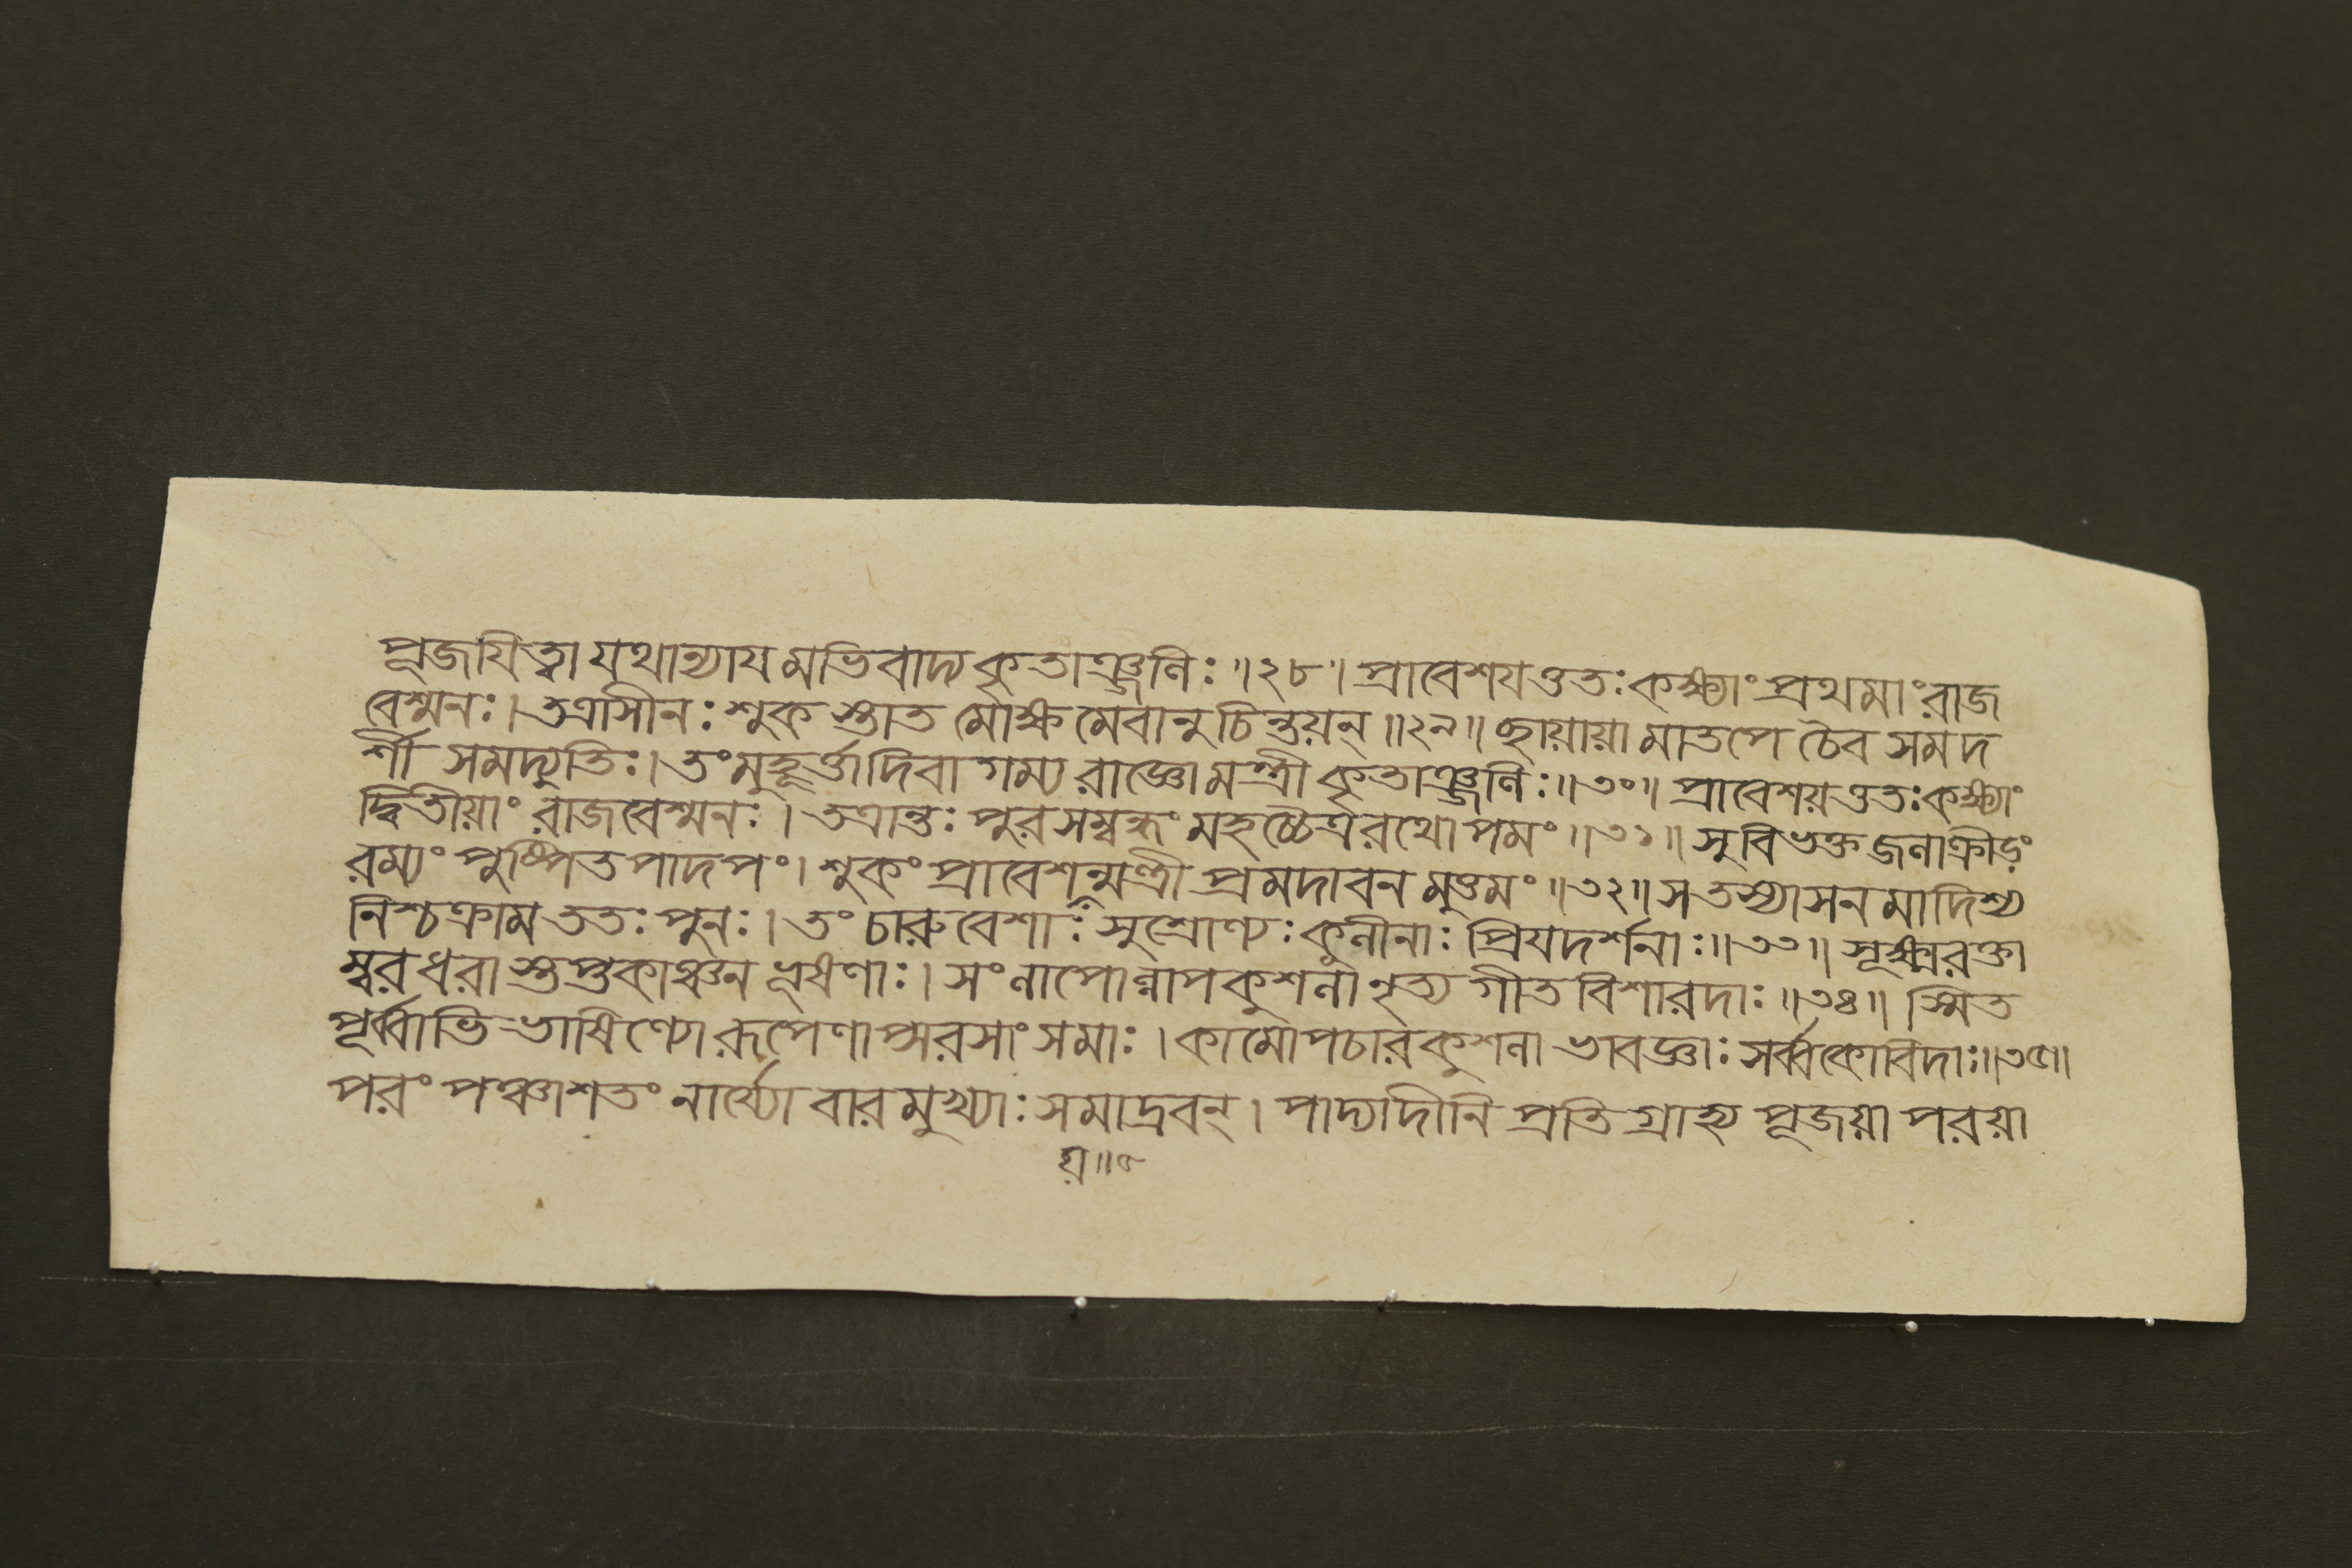 পূজযিত্বা যথান্যাযমভিবাদ্য কৃতাঞ্জলিঃ ॥২৮॥ প্রাবেশযত্ততঃ কক্ষ্যাং প্রথমাং রাজ
বেশ্মনঃ। তত্রাসীনঃ শুকস্তাত মোক্ষমেবানুচিন্তয়ন্ ॥২৯॥ ছায়ায়ামাতপে চৈব সমদ
র্শী সমদ্যুতিঃ। তং মুহূর্ত্তাদিবাগম্য রাজ্ঞো মন্ত্রী কৃতাঞ্জলিঃ॥৩০॥ প্রাবেশয়ত্ততঃ কক্ষ্যাং
দ্বিতীয়াং রাজবেশ্মনঃ। তত্রান্তঃপুরসম্বদ্ধং মহচ্চৈত্ররথোপমং ॥৩১॥ সুবিভক্তজলাক্রীড়ং
রম্যং পুষ্পিতপাদপং। শুকং প্রাবেশন্মন্ত্রী প্রমদাবনমুত্তমং ॥৩২॥ স তস্যাসনমাদিশ্য
নিশ্চক্রাম ততঃ পুনঃ। তং চারুবেশাঃ সুশ্রোণ্যঃ কুলীনাঃ প্রিযদর্শনাঃ॥৩৩॥ সূক্ষ্মরক্তা
ম্বরধরাস্তপ্তকাঞ্চনভূষণাঃ। সংলাপোল্লাপকুশলা নৃত্যগীতবিশারদাঃ ॥৩৪॥ স্মিত
পূর্ব্বাভিভাষিণ্যো রূপেণাপ্সরসাং সমাঃ। কামোপচারকুশলা ভাবজ্ঞাঃ সর্ব্বকোবিদাঃ॥৩৫॥
পরং পঞ্চাশতং নার্য্যো বারমুখ্যাঃ সমাদ্রবন্। পাদ্যাদীনি প্রতিগ্রাহ্য পূজয়া পরয়া